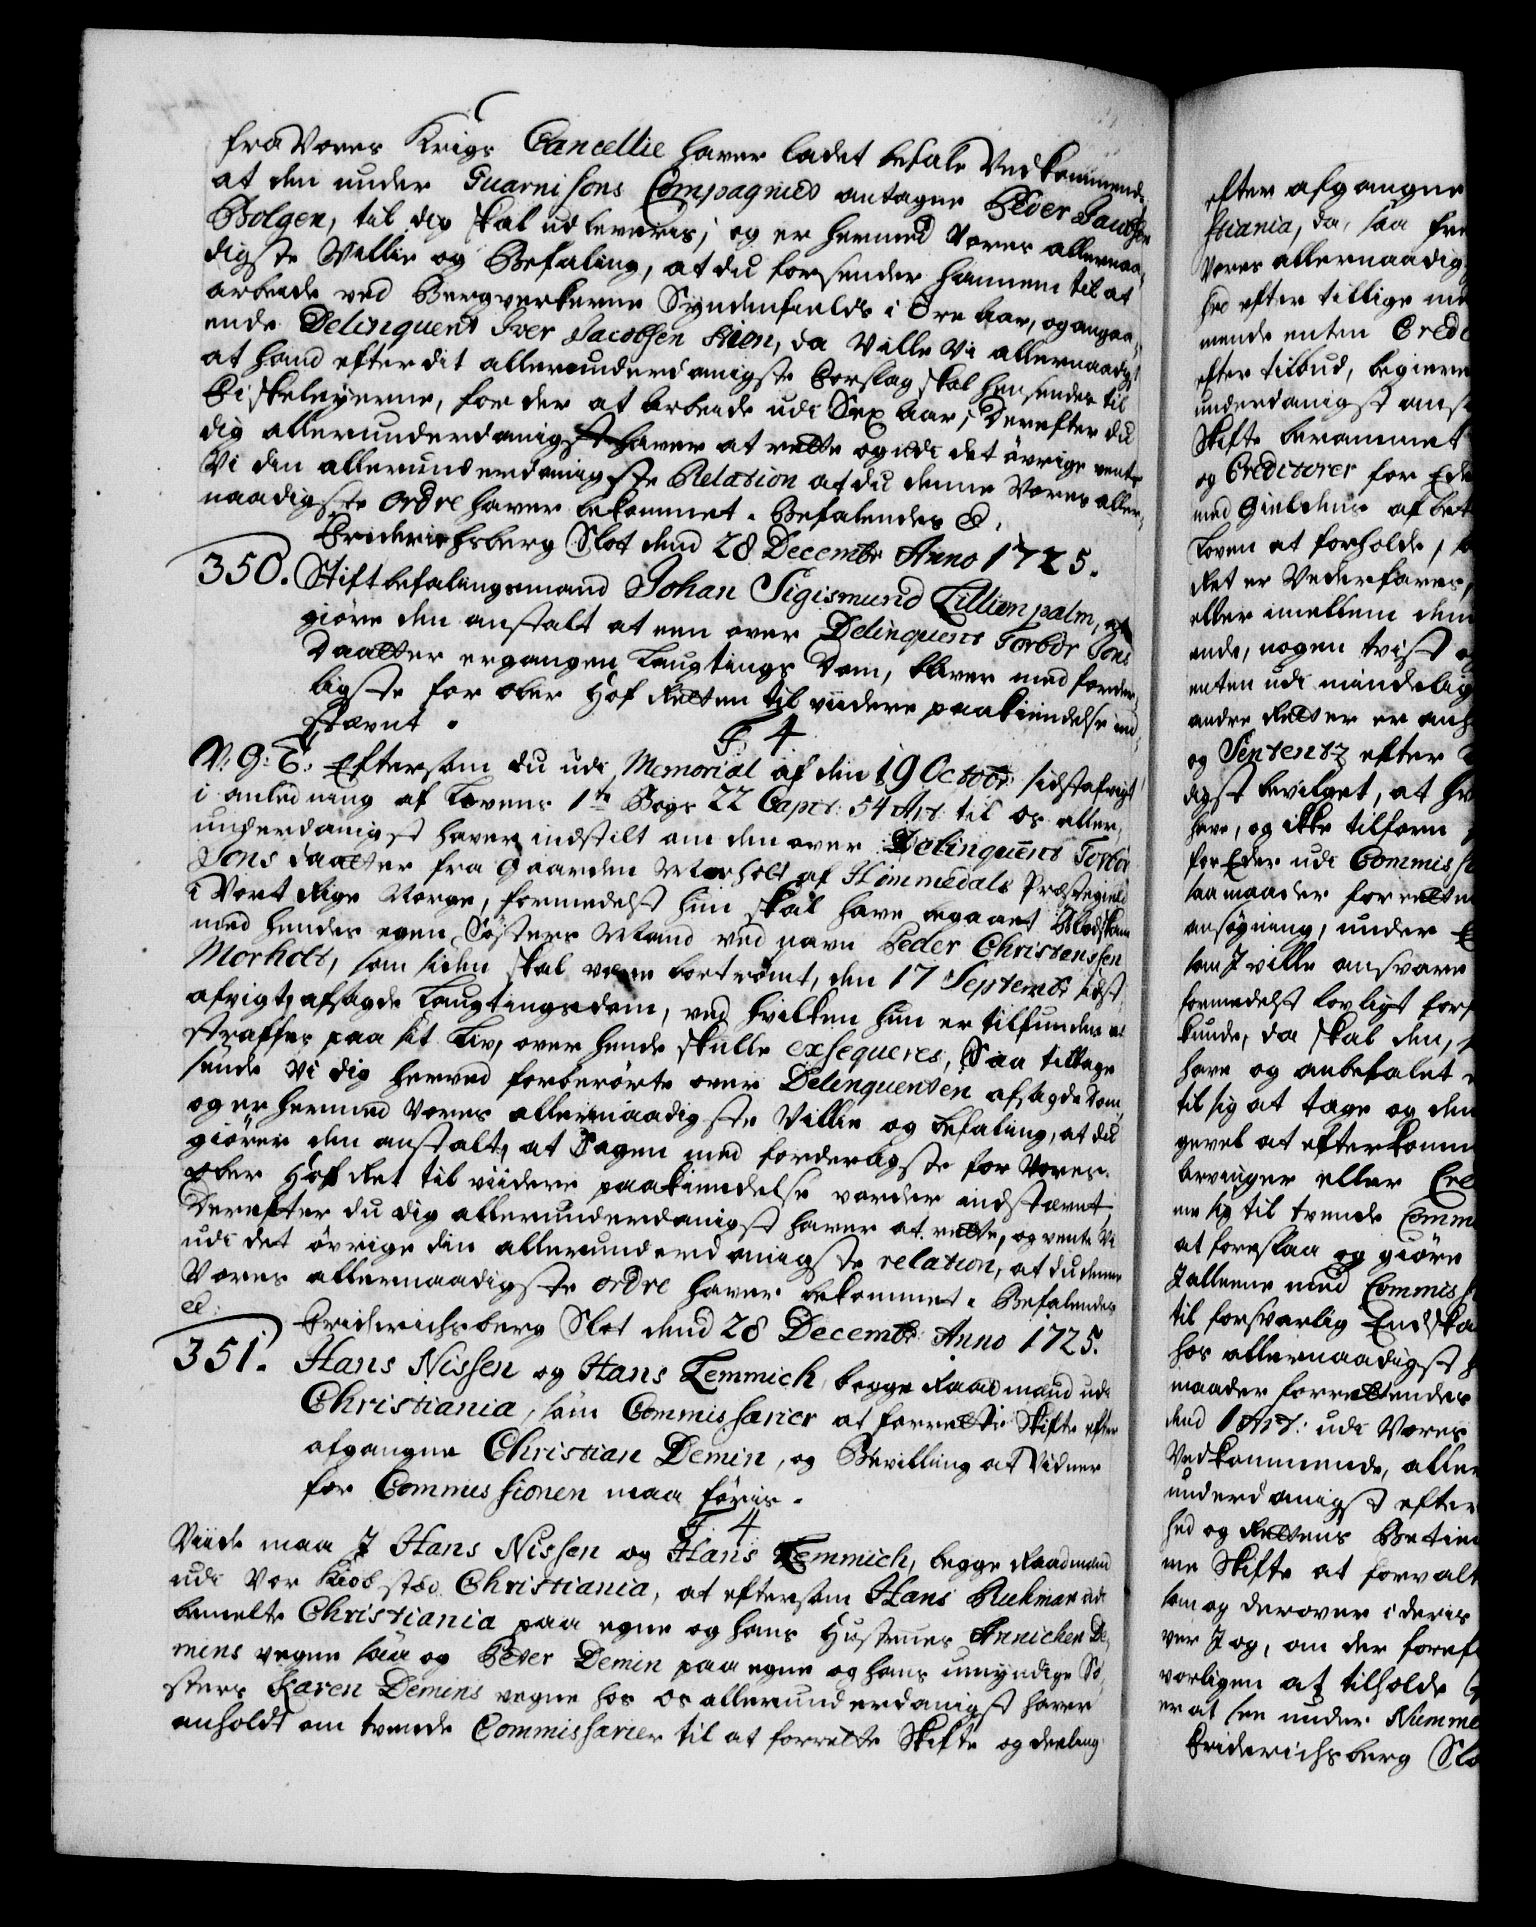 fra Vores Krigs Cancellie haver ladet befale Vedkommend-
at den under Guarnisons Compagniet antagne Peder Jacobsen
Bolgen, til dig skal udleveris, og er hermed Vores allernaa-
digste Villie og Befaling, at du forsender hannem til at
arbeide ved Bergverkerne Syndenfields i Tre Aar, og angaa-
ende Delinquent Iver Jacobsen Lien, da Ville Vi allernaadigst
at hand efter dit allerunderdanigste Forslag skal hensendes til
Fiskeleyerne, for der at arbeide udi Sex Aar; Derefter du
dig allerunderdanigst haver at rette og udi det övrige vente
Vi din allerunderdanigste Relation at du denne Vores aller-
naadigste Ordre haver bekommet. Befalendes &.
Friderichsberg Slot dend 28 Decembr Anno 1725.
350. Stiftbefalingsmand Johan Sigismund Lillienpalm, at
giöre den anstalt at een over Delinquent Torbör Tons
Daatter ergangen Laugtings Dom, bliver med forder-
ligste for Ober Hof Retten til viidere paakiendelse ind-
stævnt.
F 4
V: G: T: Eftersom du udi Memorial af den 19 Octobr: sidstafvigt
i anledning af Lovens 1te Bogs 22 Capt: 54 Art til os aller-
underdanigst haver indstilt om den over Delinquent Torbör
Tons daatter fra Gaarden Morholt af Hommedals Præstegield
i Vort Rige Norge, formedelst hun skal have begaaet Blodskam
med hendes egen Sösters Mand ved navn Peder Christenssen
Morholt, som siden skal være bortrömt, den 17 Septembr sidst
afvigt, afsagde Laugtingsdom, ved hvilken hun er tilfunden at
straffes paa sit Liv, over hende skulle exsequeres, Saa tillige
sende Vi dig herved forberörte over Delinquenten afsagde Dom,
og er hermed Vores allernaadigste Villie og befaling, at du
giörer den anstalt, at Sagen med forderligste for Vores
Ober Hof Ret til viidere paakiendelse vorder indstævnt,
Derefter du dig allerunderdanigst haver at rette, og vente Vi
udi det övrige din allerunderdanigste relation, at du denne
Vores allernaadigste ordre haver bekommet. Befalendes
&:
Friderichsberg Slot dend 28 Decembr: Anno 1725.
351. Hans Nissen og Hans Lemmich, begge Raadmænd udi
Christiania, som Commissarier at forrette Skifte efter
afgangne Christian Demin, og Bevilling at Vidner
for Commissionen maa föris.
F. 4
Viide maa I Hans Nissen og Hans Lemmich, begge Raadmænd
udi Vor Kiöbsted Christiania, at eftersom Hans Rukman udi
bemelte Christiania paa egne og hans Hustrues Annichen De-
mins vegne saa og Peter Demin paa egne og hans umyndige Sö-
sters Karen Demins vegne hos os allerunderdanigst haver
anholdt om tvende Commissarier til at forrette Skifte og deeling
efter afgangne
stiania, da, saa fre
Vores allernaadig
hed efter tillige me
mende enten Credi
efter tilbud, begiere
underdanigst ans
Skifte berammet
og Creditorer for Ede
med Gieldens afbet
Loven at forholde,
Ret er Vederfares,
eller imellem dem
ende, nogen tvist o
enten udi mindelig
andre Retter er anh
og Sententz efter
digst bevilget, at hv
have, og ikke tilforn
for Eder udi Commiss
saa maader forrette
ansögning, under
som I ville ansvare
formedelst lovligt forf
kunde, da skal den,
have og anbefalet
til sig at tage og den
gevel at efterkomm
arvinger eller Cre
ne sig til tvende Comm
at foreslaa og giöre
I alleene med Commiss
til forsvarlig Endska
hos allernaadigst
maader forrettendes
dend 1 Art: udi Vores
Vedkommende, alle
underdanigst efter
hed og Rettens Betien
ne Skifte at forvalt
som og derover i deris
ver I og, om der foref
vorligen at tilholde
er at see under Numme
Friderichsberg Slo